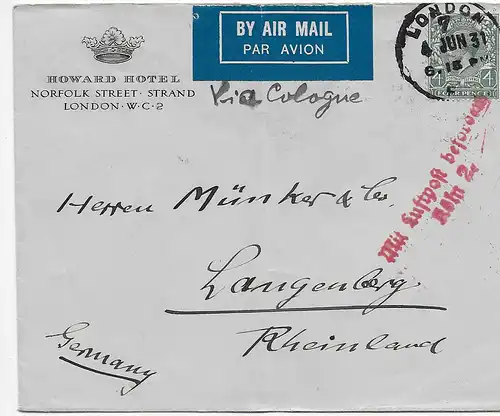 BY AIR MAIL
PAR AVION
LONDON
4 JUN 31
6 15 PM
4 4
FOUR PENCE
HOWARD HOTEL
NORFOLK STREET · STRAND
LONDON · W·C·2
Via Cologne
Mit Luftpost befördert
Köln 2
Herren Münker & Co.
Langenberg
Rheinland
Germany